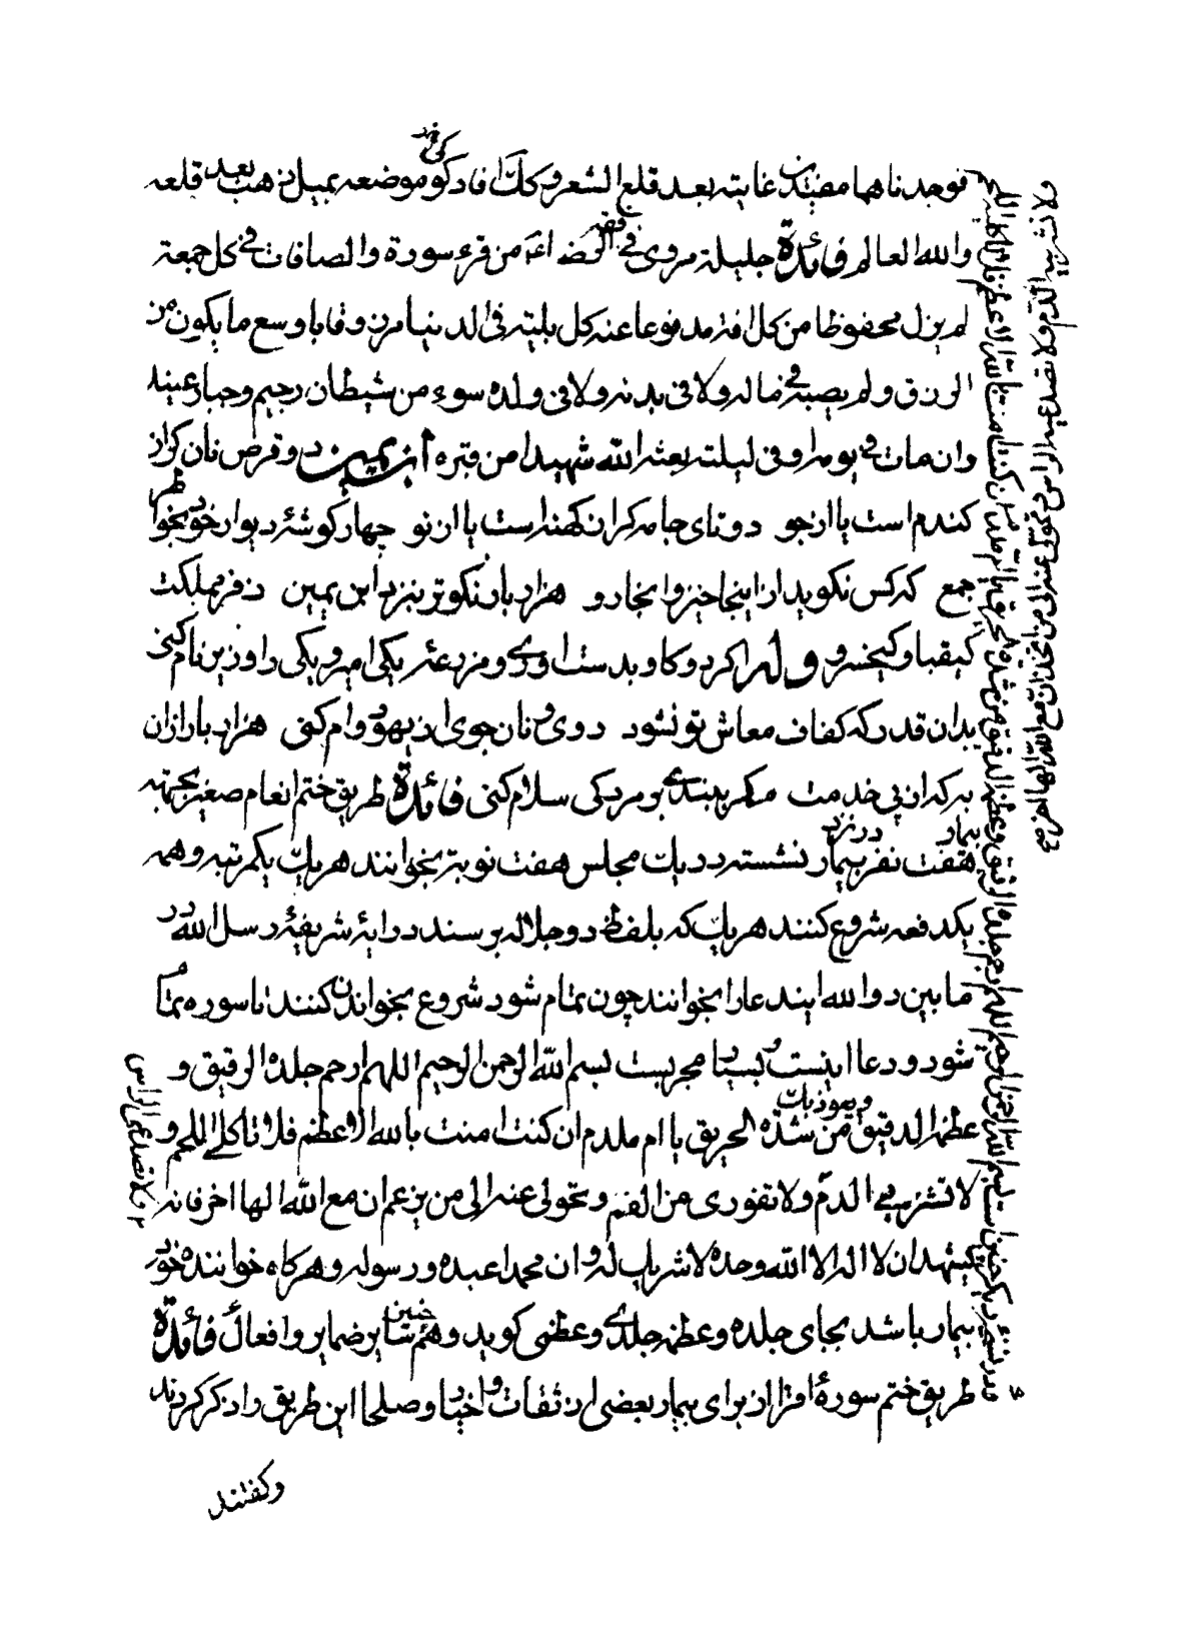 فوجدناهما مفیدتین غایته بعد قلع الشعر وکذا افاد کوی موضعه بمیل ذهب بعد قلعه
والله العالم فائدة جلیلة مروی فی فقه الرضا ع من قرء سورة والصافات فی کل جمعة
لم یزل محفوظا من کل افة مدفوعا عنه کل بلیة فی الدنیا مرزوقا باوسع ما یکون من
الرزق ولم یصبه فی ماله ولا فی بدنه ولا فی ولده سوء من شیطان رجیم وجبار عنید
وان مات فی یومه او فی لیلته بعثه الله شهیدا من قبره ابن یمین دو قرص نان کر از
کندم است یا از جو دو تای جامه کر از کهنه است یا از نو چهار کوشهٔ دیوار خود بخواطر
جمع که کس نکوید از اینجا خیز و انجا رو هزار بار نکوتر بنزد ابن یمین ز فر مملکت
کیقباد و کیخسرو وله اکر دو کاو بدست اوری و مزرعهٔ یکی امیر و یکی را وزیر نام کنی
بدان قدر که کفاف معاش تو نشود روی و نان جوی از یهود وام کنی هزار بار از ان
به که از پی خدمت کمر ببندی بر مردکی سلام کنی فائدة طریق ختم انعام صغیر بجهته
بیمار هفت نفر در نزد بیمار نشسته در یک مجلس هفت نوبت بخوانند هر یک یکمرتبه و همه
یکدفعه شروع کنند هر یک که بلفظ دو جلاله برسند در ایهٔ شریفهٔ رسل الله در
ما بین دو الله ایندعا را بخوانند چون تمام شود شروع بخواندن کنند تا سوره تمام
شود و دعا اینست و بسیار مجربست بسم الله الرحمن الرحیم اللهم ارحم جلده الرقیق و
عظمه الدقیق من شدة الحریق یا ام ملدم ان کنت امنت بالله الاعظم فلا تاکلی اللحم و
لا تشربی الدم ولا تفوری من الفم و تحولی عنه الی من یزعم ان مع الله الها اخر فانه
یشهد ان لا اله الا الله وحده لا شریک له و ان محمدا عبده و رسوله و هرکاه خواننده خود
بیمار باشد بجای جلده و عظمه جلدی و عظمی کوید و همچنین سایر ضمایر و افعال فائدة
طریق ختم سورهٔ انعام از برای بیمار بعضی از ثقات و اخیار و صلحا این طریق را ذکر کردند
وکفتند
ولا تصدعی الراس
ولا تشربی الدم ولا تصدعی الراس و تحولی عنه الی من اتخذ مع الله الها اخر